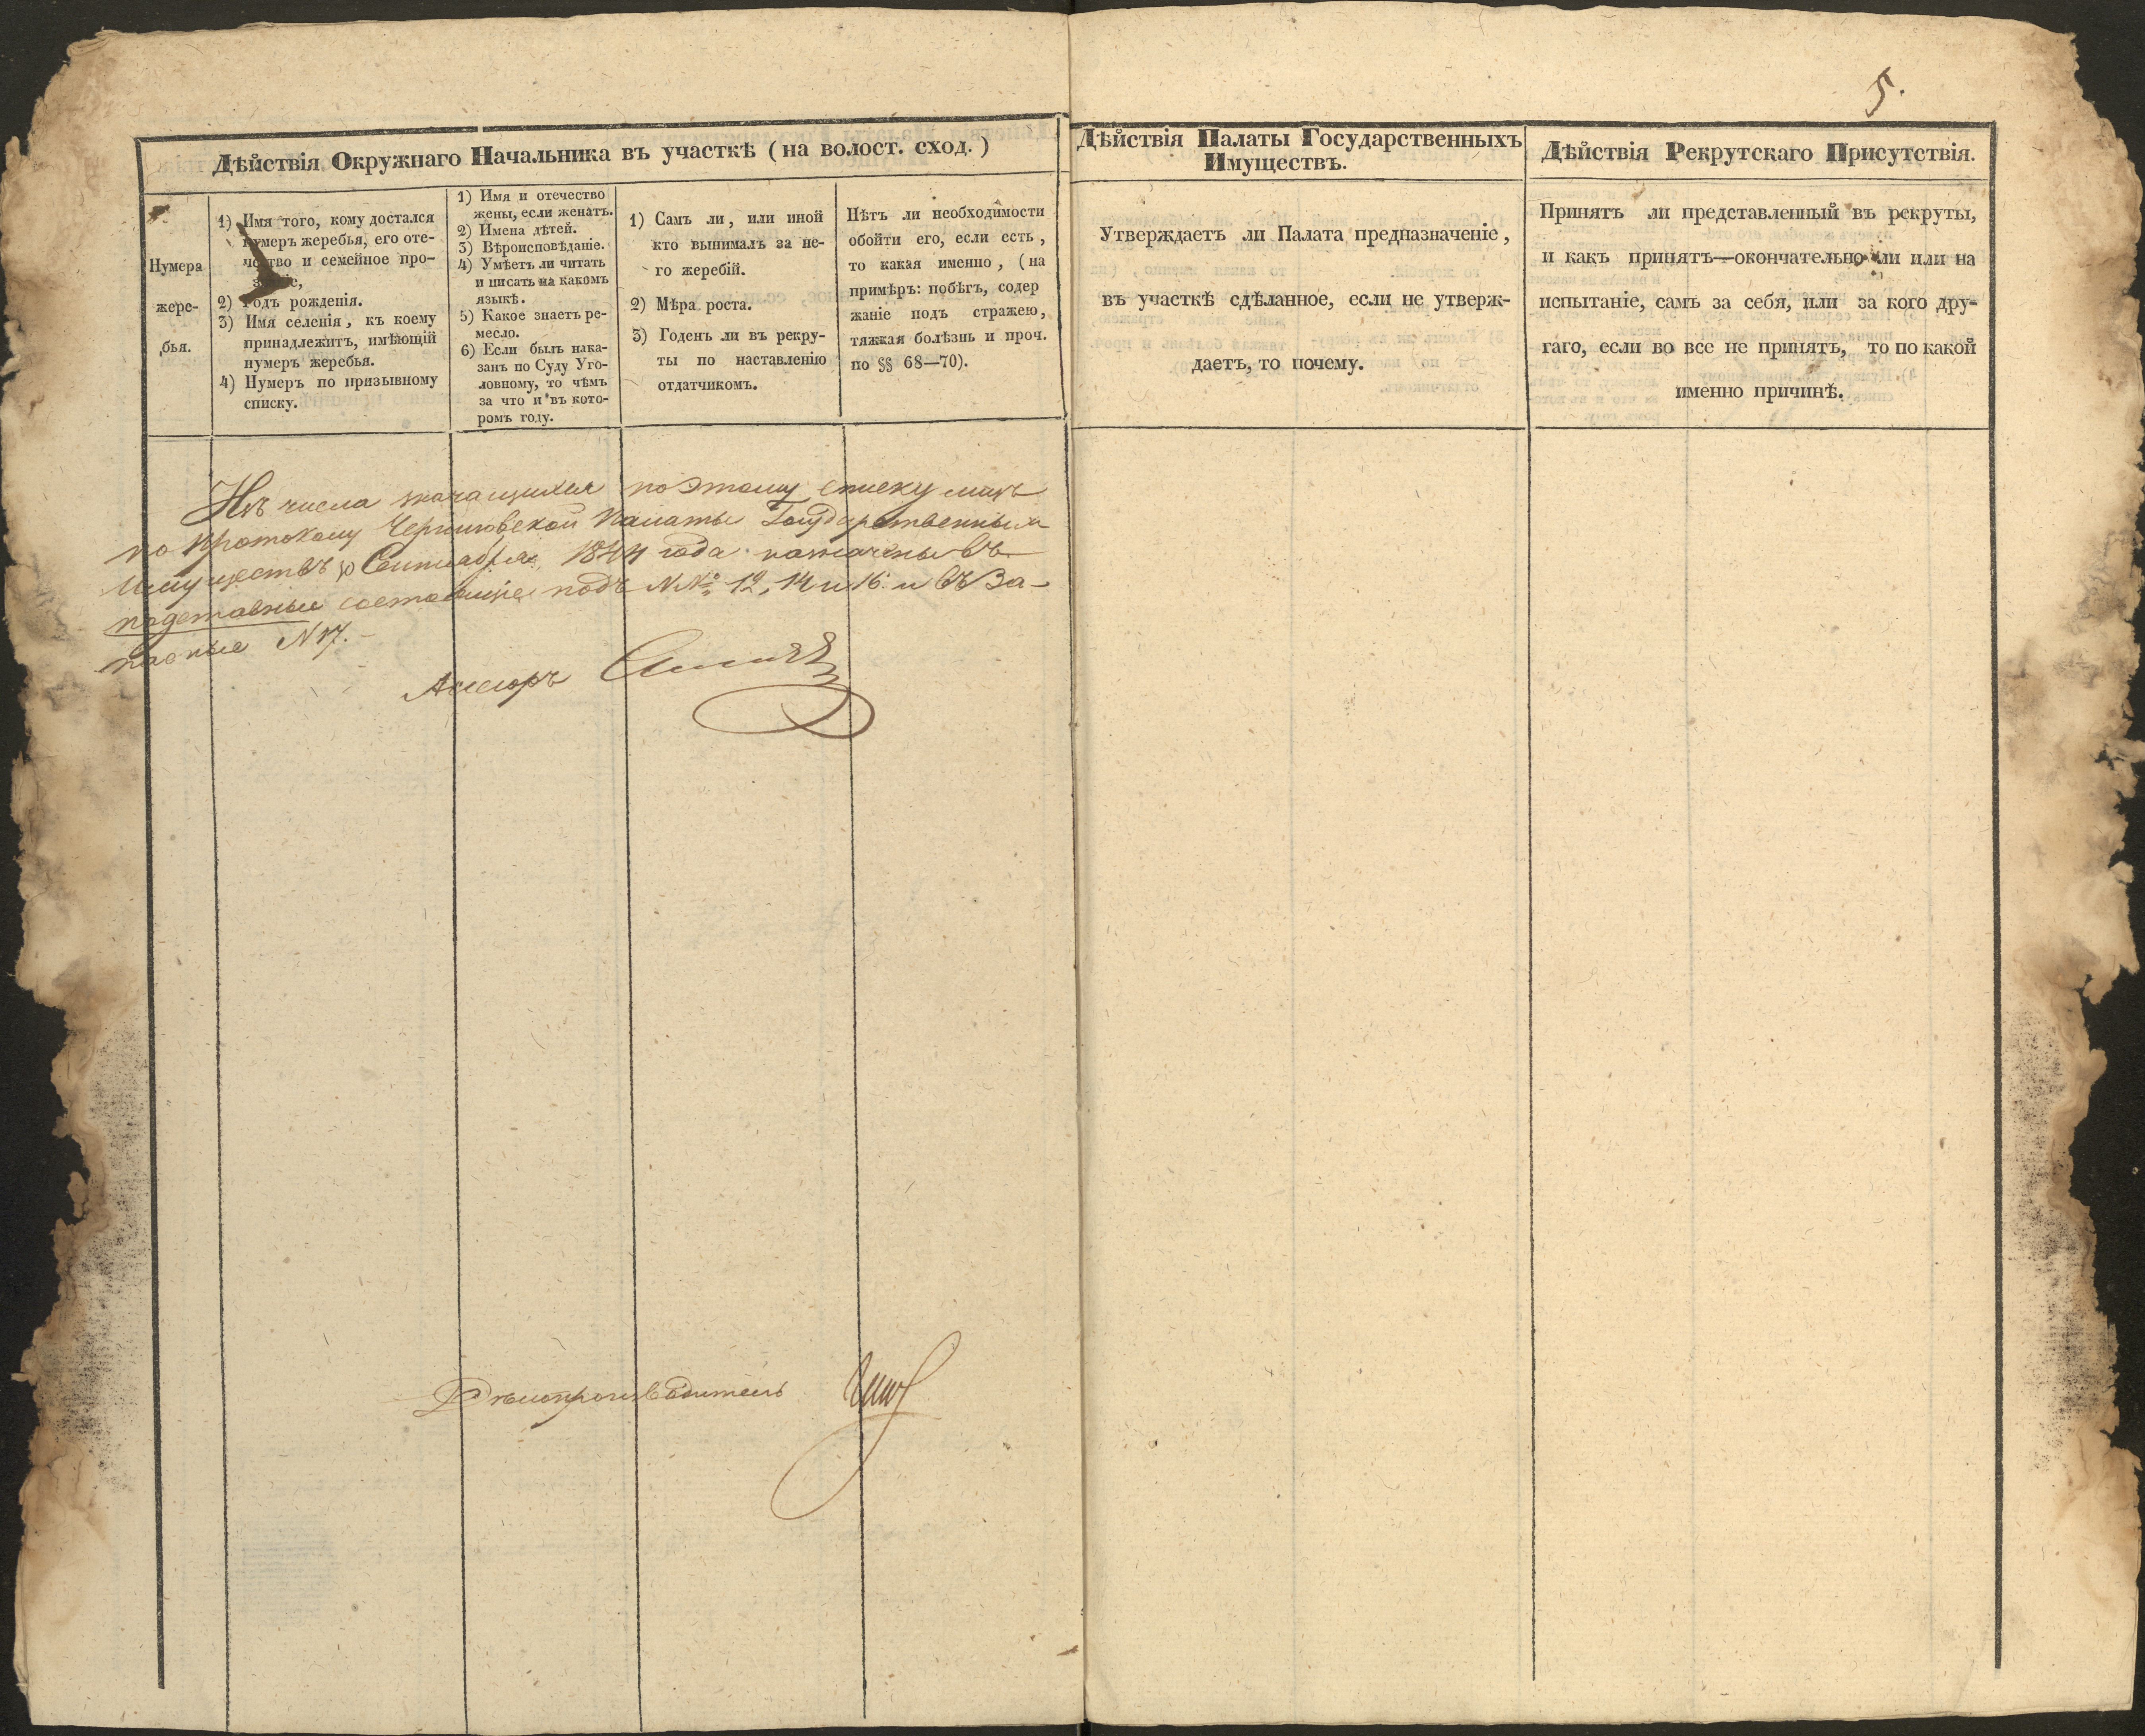 5.
Дѣйствія Окружнаго Начальника въ участкѣ (на волост. сход.)
Нумера
жере-
бья.
1) Имя того, кому достался
нумеръ жеребья, его оте-
чество и семейное про-
2) Годъ рожденія.
3) Имя селенія, къ коему
принадлежитъ, имѣющій
нумеръ жеребья.
4) Нумеръ по призывному
списку.
1) Имя и отечество
жены, если женатъ.
2) Имена дѣтей.
3) Вѣроисповѣданіе.
4) Умѣетъ ли читать
и писать на какомъ
языкѣ.
5) Какое знаетъ ре-
месло.
6) Если былъ нака-
занъ по Суду Уго-
ловному, то чѣмъ
за что и въ кото-
ромъ году.
1) Самъ ли, или иной
кто вынималъ за не-
го жеребій.
2) Мѣра роста.
3) Годенъ ли въ рекру-
ты по наставленію
отдатчикомъ.
Нѣтъ ли необходимости
обойти его, если есть,
то какая именно, (на
примѣръ: побѣгъ, содер
жаніе подъ стражею,
тяжкая болѣзнь и проч.
по §§ 68—70).
Изъ числа значащихся по этому списку лицъ
по протоколу Черниговской Палаты Государственныхъ
Имуществъ Сентября 1844 года назначены въ
подставные состоящіе подъ №№ 12, 14 и 16. и въ За-
пасные N 17.
Асесоръ
Дѣлопроизводитель
Дѣйствія Палаты Государственныхъ
Имуществъ.
Утверждаетъ ли Палата предназначеніе,
въ участкѣ сдѣланное, если не утверж-
даетъ, то почему.
Дѣйствія Рекрутскаго Присутствія.
Принятъ ли представленный въ рекруты,
и какъ принятъ—окончательно ли или на
испытаніе, самъ за себя, или за кого дру-
гаго, если во все не принятъ, то по какой
именно причинѣ.